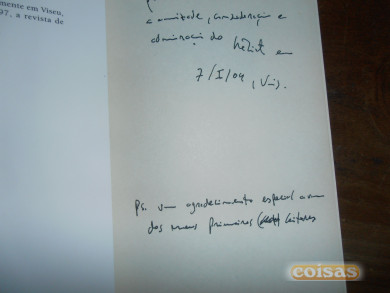 mente em Viseu.
97, a revista de
a amizade, consideração e
admiração do
em
7/I/09 (Vis).
Ps. um agradecimento especial a um
dos meus primeiros leitores
coisas